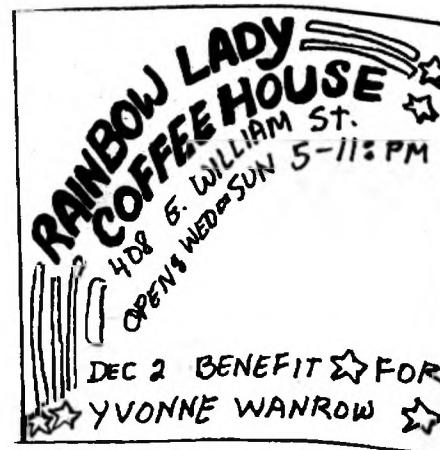 RAINBOW LADY
COFFEE HOUSE
408 E. WILLIAM St.
OPEN: WED-SUN 5-11: PM
DEC 2 BENEFIT FOR
YVONNE WANROW